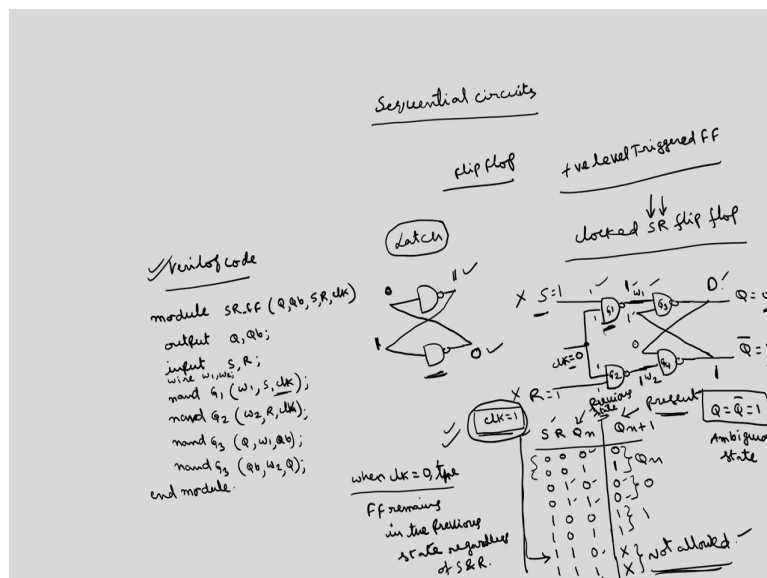 Sequential circuits
flip flop
+ve level Triggered FF
Latch
clocked SR flip flop
Verilog code
module SR-FF (Q,Qb,S,R,clk)
output Q,Qb;
input S,R;
wire w1,w2;
nand G1 (w1,S,clk);
nand G2 (w2,R,clk);
nand G3 (Q,w1,Qb);
nand G3 (Qb,w2,Q);
end module.
0
1
1
0
X S=1
1
1 w1
0
G1
G3
Q=
1
1
clk=0
0
Q̅=
1
G2
1 w2
G4
1
X R=1
Previous state
Present
Q=Q̅=1
Ambiguous state
clk=1
S R Qn Qn+1
0 0 0 0
0 0 1 1
Qn
0 1 0 0
0 1 1 0
0
1 0 0 1
1 0 1 1
1
1 1 0 X
1 1 1 X
Not allowed
when clk=0, type
FF remains
in the previous
state regardless
of S&R.